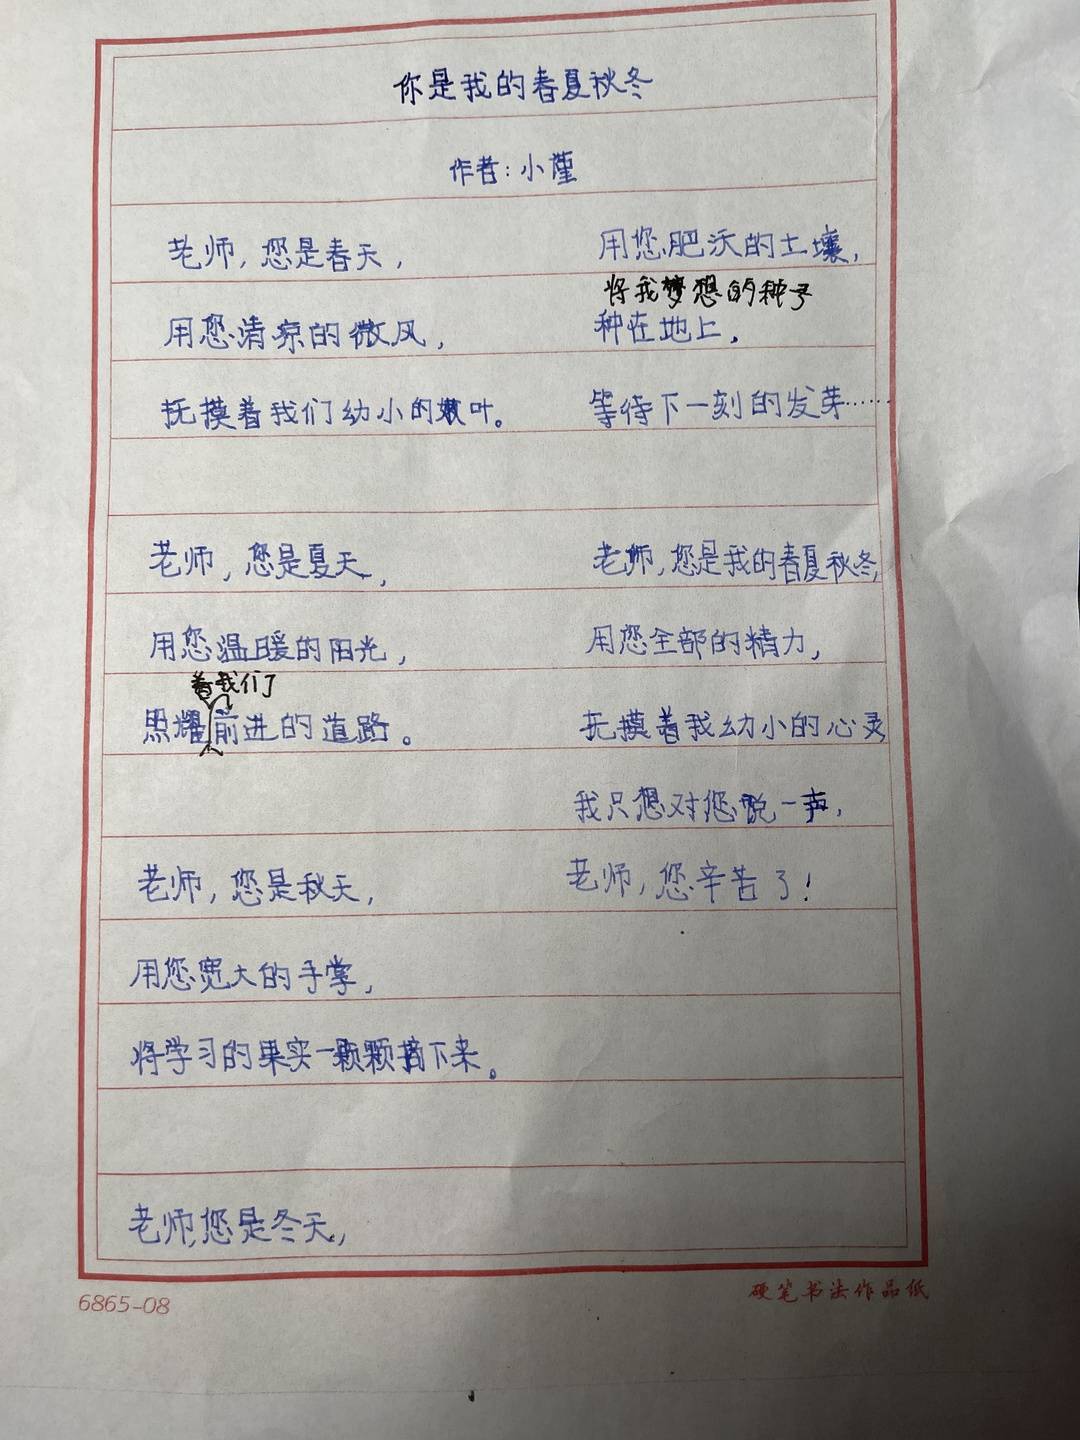 你是我的春夏秋冬
作者：小瑾
老师，您是春天，
用您清凉的微风，
抚摸着我们幼小的嫩叶。
老师，您是夏天，
用您温暖的阳光，
着我们
照耀前进的道路。
老师，您是秋天，
用您宽大的手掌，
将学习的果实一颗颗摘下来。
老师，您是冬天，
用您肥沃的土壤，
将我梦想的种子
种在地上，
等待下一刻的发芽……
老师，您是我的春夏秋冬，
用您全部的精力，
抚摸着我幼小的心灵
我只想对您说一声，
老师，您辛苦了！
6865-08
硬笔书法作品纸